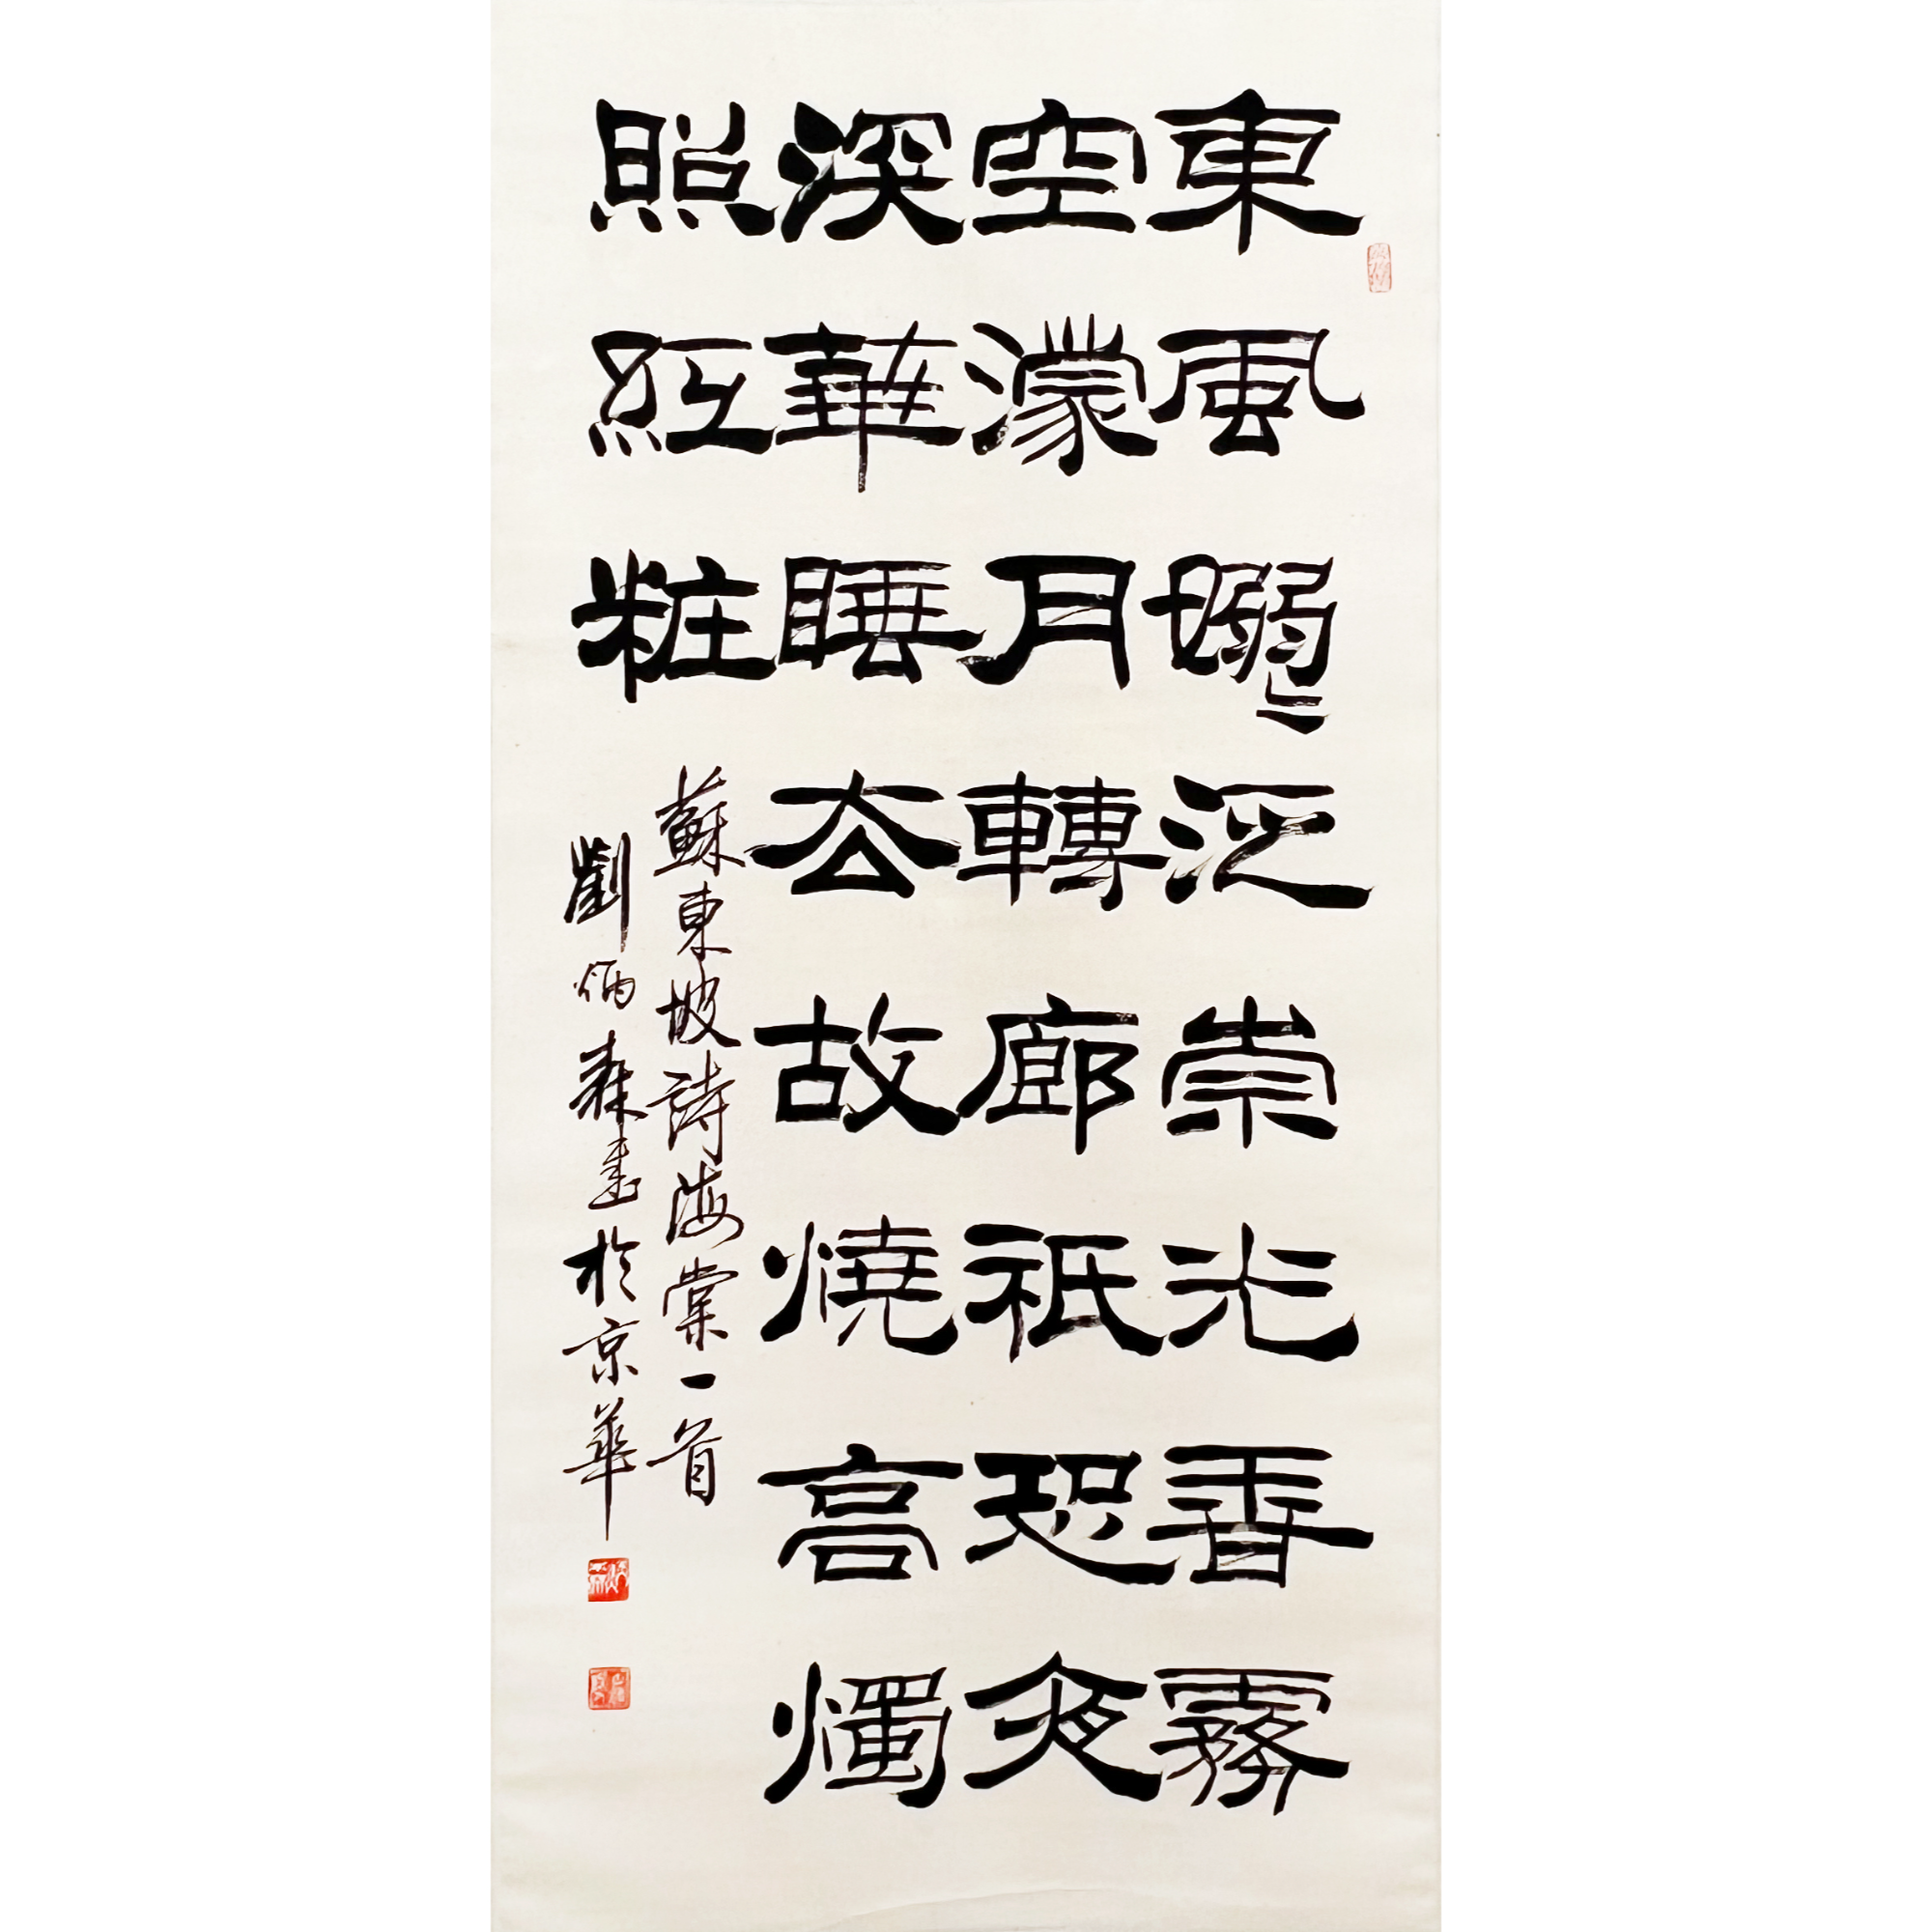 東風嫋〻泛崇光香霧
空濛月轉廊祇恐夜
深華睡去故燒高燭
照紅粧
蘇東坡詩海棠一首
劉炳森書於京華